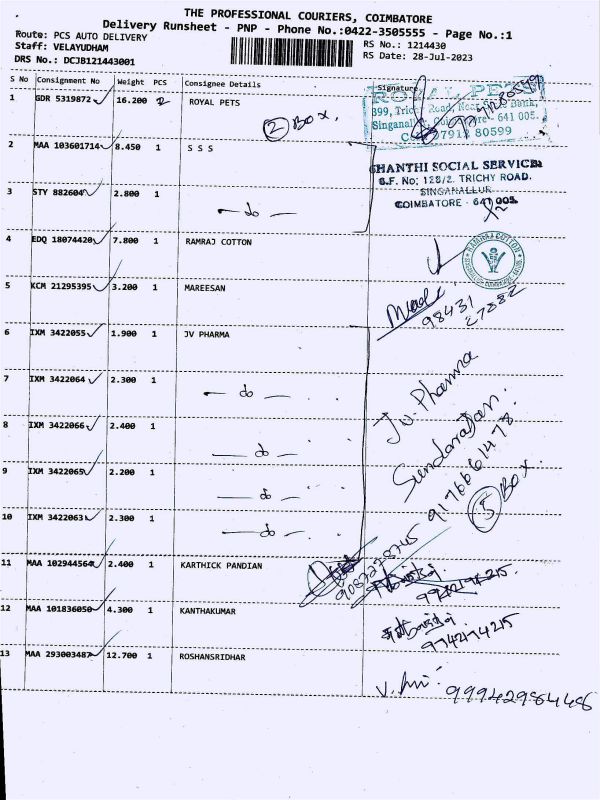 THE PROFESSIONAL COURIERS, COIMBATORE
Delivery Runsheet - PNP - Phone No.:0422-3505555 - Page No.:1
Route: PCS AUTO DELIVERY
Staff: VELAYUDHAM
DRS No.: DCJB121443001
RS No.: 1214430
RS Date: 28-Jul-2023
S No Consignment No Weight PCS Consignee Details Signature
1 GDR 5319872 16.200 2 ROYAL PETS
2 Box.
ROYAL PETS
899, Trichy Road, Near Bank,
Singanallur, Coimbatore - 641 005.
97912 80599
2 MAA 103601714 8.450 1 S S S
SHANTHI SOCIAL SERVICES
S.F. No: 128/2. TRICHY ROAD.
SINGANALLUR
COIMBATORE - 641 005.
3 STY 882604 2.800 1
— do —
4 EDQ 18074420 7.800 1 RAMRAJ COTTON
RAMRAJ COTTON
5 KCM 21295395 3.200 1 MAREESAN
98431
27882
6 IXM 3422055 1.900 1 JV PHARMA
7 IXM 3422064 2.300 1
— do —
Jv. Pharma
8 IXM 3422066 2.400 1
— do —
Sundarajan.
9 IXM 3422065 2.200 1
— do —
9176661478
5 Box.
10 IXM 3422063 2.300 1
— do —
11 MAA 102944564 2.400 1 KARTHICK PANDIAN
12 MAA 101836050 4.300 1 KANTHAKUMAR
9742174215
13 MAA 293003487 12.700 1 ROSHANSRIDHAR
99942984448